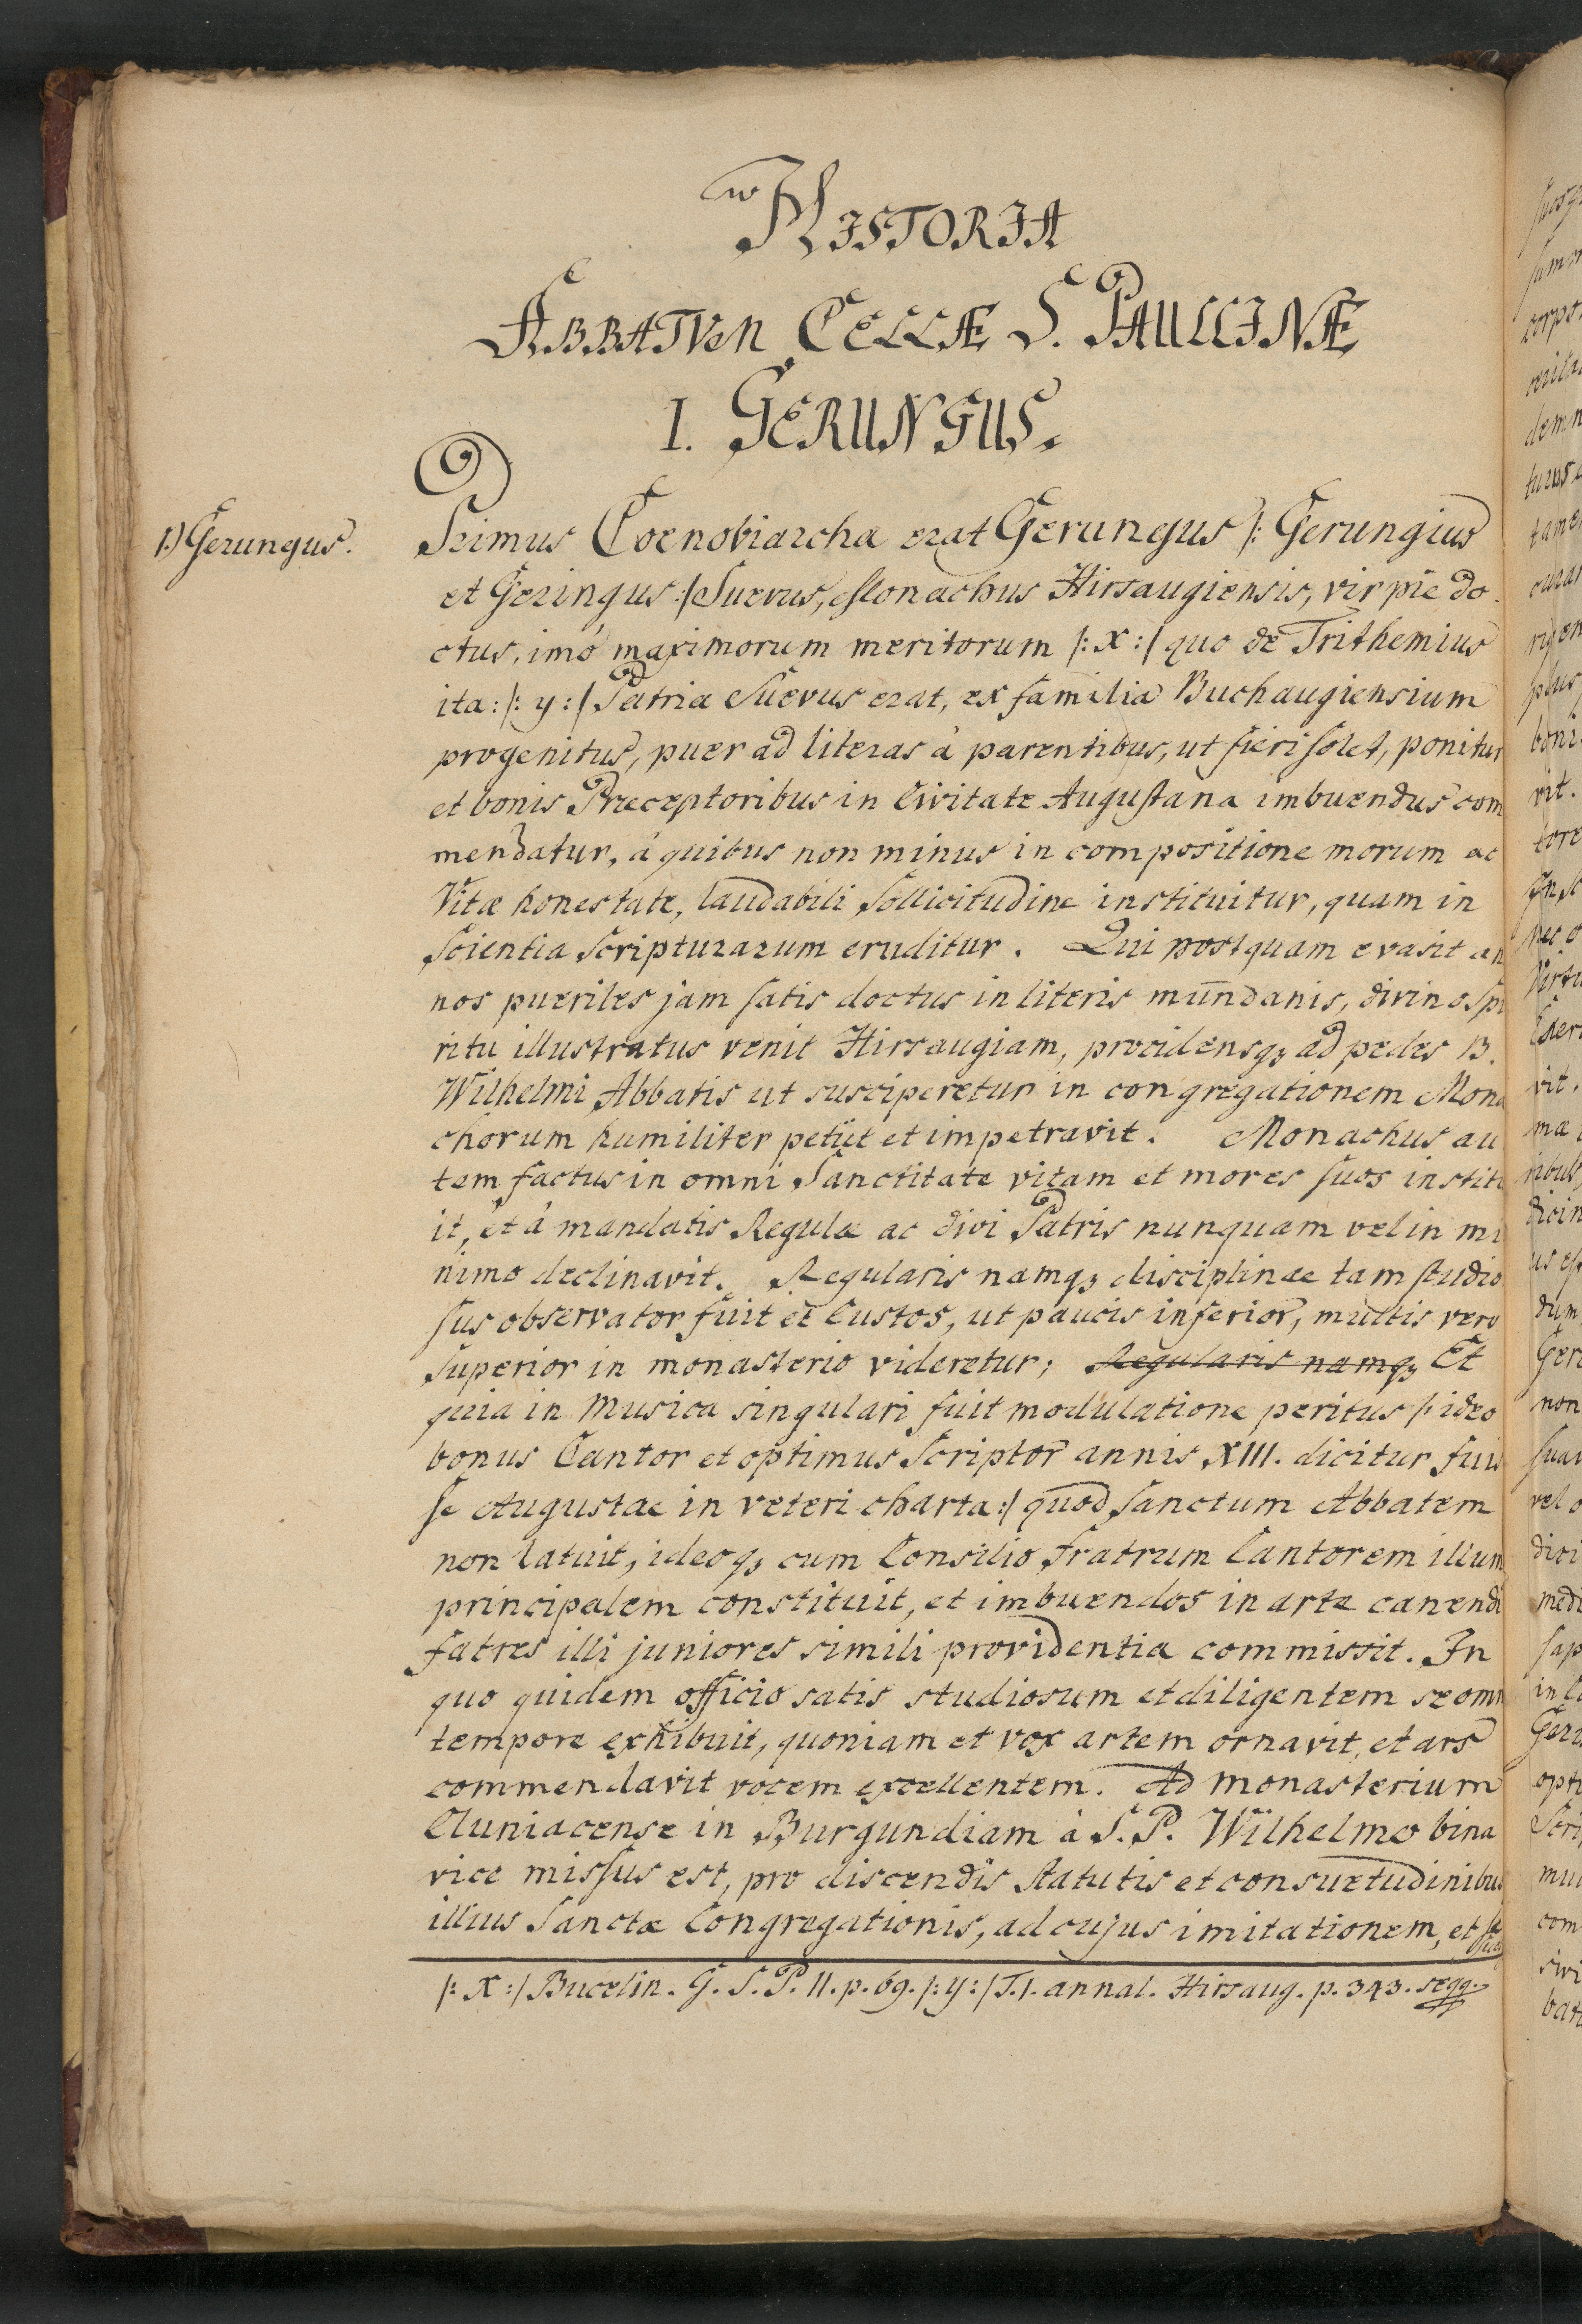 HISTORIA
ABBATUM CELLÆ S. PAULLINÆ
I. GERUNGUS.
1.) Gerungus.
Primus Coenobiarcha erat Gerungus /: Gerungius
et Geringus :/ Suevus, Monachus Hirsaugiensis, vir pie do
ctus, imó maximorum meritorum /: x :/ quo de Trithemius
ita: /: y :/ Patria Suevus erat, ex familia Buchaugiensium
progenitus, puer ad literas à parentibus, ut fieri solet, ponitur
et bonis Præceptoribus in Civitate Augustana imbuendus com
mendatur, á quibus non minus in compositione morum ac
Vitæ honestate, laudabili sollicitudine instituitur, quam in
Scientia Scripturarum eruditur. Qui postquam evasit an
nos pueriles jam satis doctus in literis mundanis, divino Spi
ritu illustratus venit Hirsaugiam, procidensqꝫ ad pedes B.
Wilhelmi Abbatis ut susciperetur in congregationem Mona
chorum humiliter petiit et impetravit. Monachus au
tem factus in omni Sanctitate vitam et mores suos institu
it, et á mandatis Regulæ ac divi Patris nunquam vel in mi
nimo declinavit. Regularis namqꝫ disciplinae tam studio
sus observator fuit et Custos, ut paucis inferior, multis vero
superior in monasterio videretur; Regularis namqꝫ Et
quia in Musica singulari fuit modulatione peritus /: ideo
bonus Cantor et optimus Scriptor annis XIII. dicitur fuis
se Augustae in veteri charta :/ quod Sanctum Abbatem
non latuit, ideoqꝫ cum Consilio Fratrum Cantorem illum
principalem constituit, et imbuendos in arte canendi
fatres illi juniores simili providentia commissit. In
quo quidem officio satis studiosum et diligentem se omn
tempore exhibuit, quoniam et vox artem ornavit, et ars
commendavit vocem excellentem. Ad monasterium
Cluniacense in Burgundiam à S. P. Wilhelmo bina
vice missus est, pro discendis statutis et consuetudinibus
illius Sanctæ Congregationis, ad cujus imitationem, et
/: X :/ Bucelin. G. S. P. II. p. 69. /: y :/ T. I. annal. Hirsaug. p. 343. seqq.